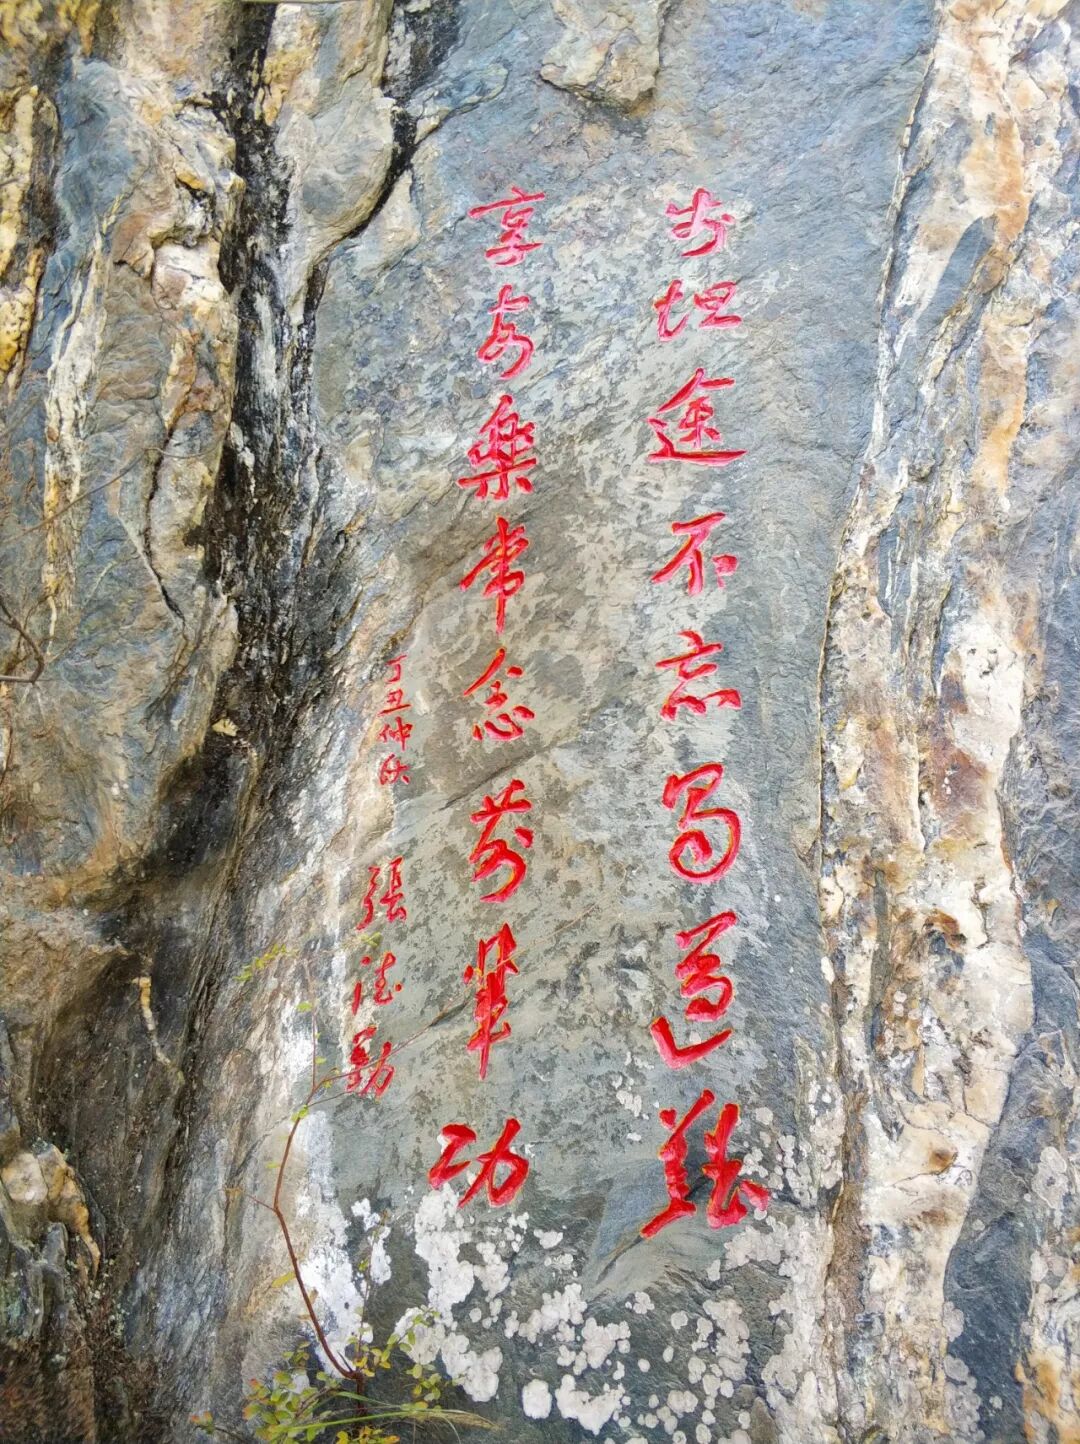 步坦途不忘蜀道難
享安樂常念前輩功
丁丑仲秋
張德勤